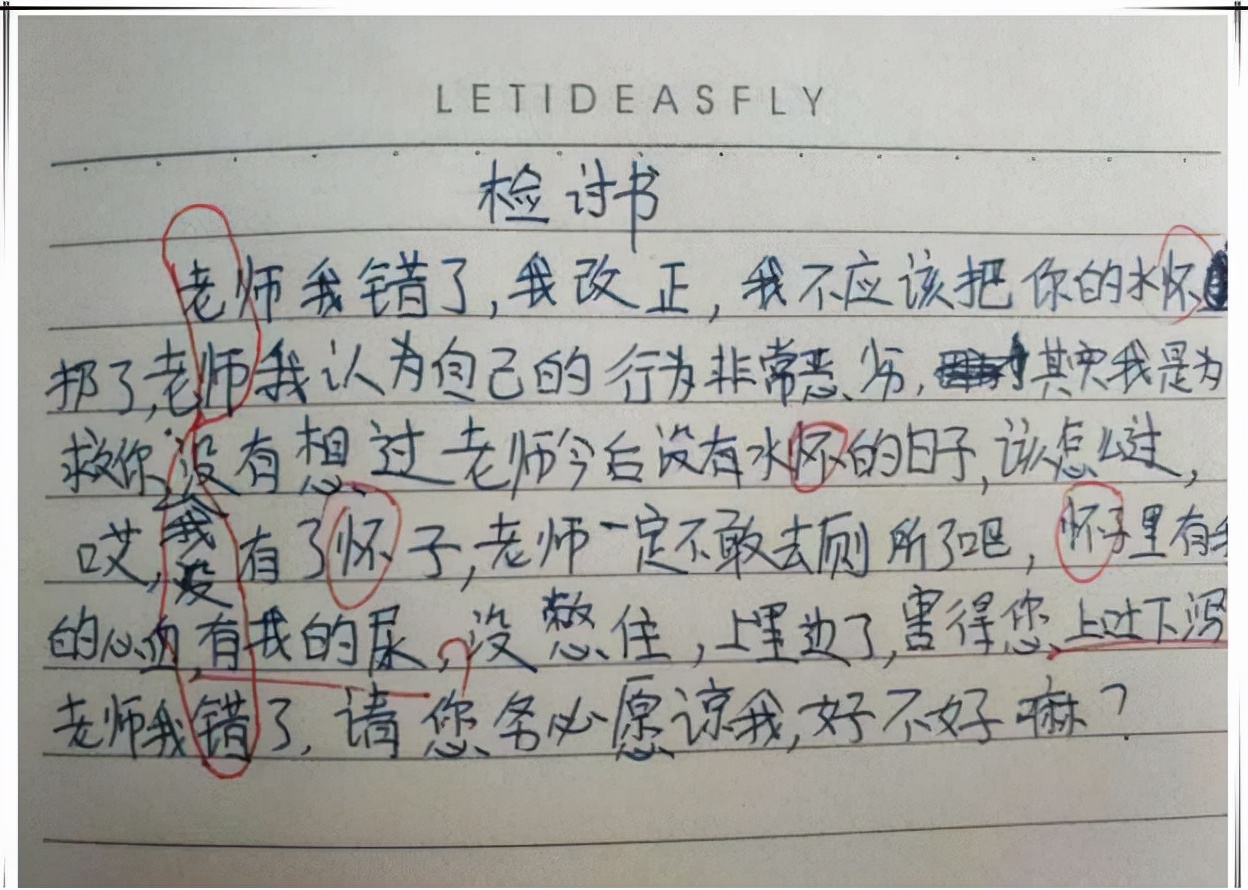 LETIDEASFLY
检讨书
老师我错了,我改正,我不应该把你的水怀
扔了,老师我认为自己的行为非常恶劣,其实我是为
救你,没有想过老师今后没有水怀的日子,该怎么过,
哎,我没有了怀子,老师一定不敢去厕所了吧,怀子里有我
的心血,有我的尿,没憋住,上里边了,害得您上吐下泻
老师我错了,请您务必愿谅我,好不好嘛?